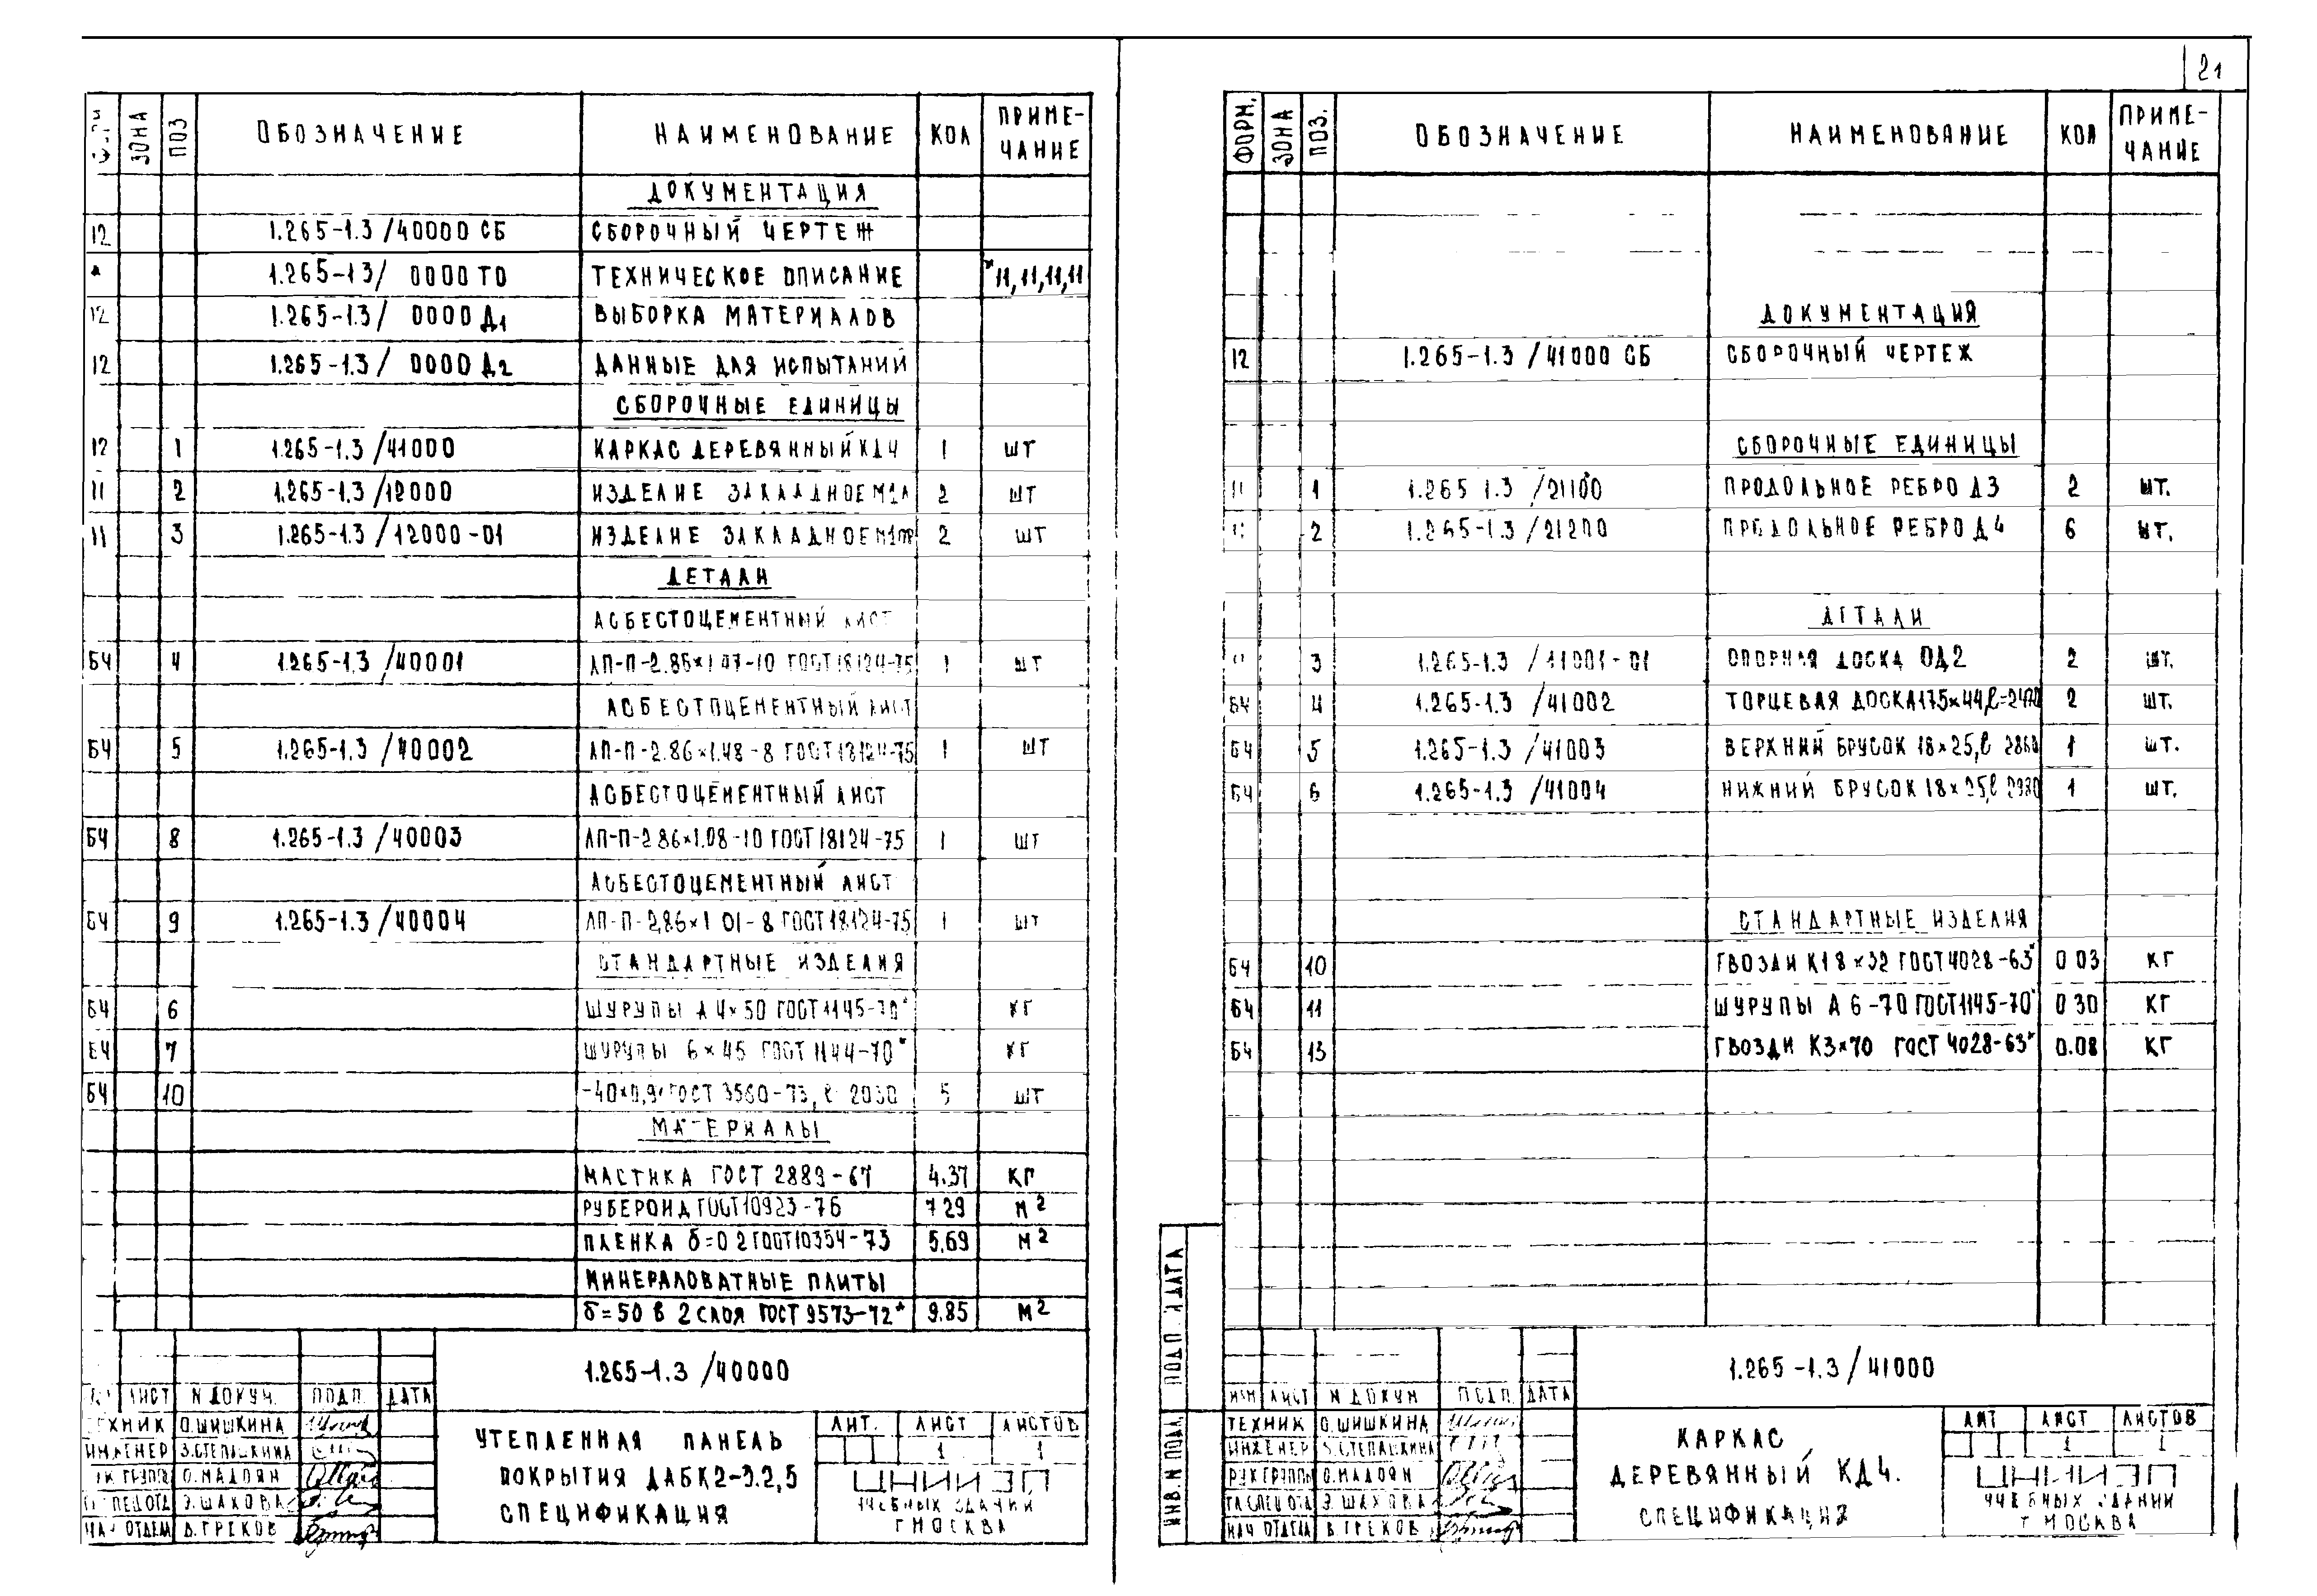 21
ЗОНА ПОЗ ОБОЗНАЧЕНИЕ НАИМЕНОВАНИЕ КОЛ ПРИМЕ-
ЧАНИЕ
ДОКУМЕНТАЦИЯ
12 1.265-1.3 /40000 СБ СБОРОЧНЫЙ ЧЕРТЕЖ
* 1.265-1 3/ 0000 ТО ТЕХНИЧЕСКОЕ ОПИСАНИЕ *11,11,11,11
12 1.265-1.3/ 0000 Д1 ВЫБОРКА МАТЕРИАЛОВ
12 1.265-1.3/ 0000 Д2 ДАННЫЕ ДЛЯ ИСПЫТАНИЙ
СБОРОЧНЫЕ ЕДИНИЦЫ
12 1 1.265-1.3 /41000 КАРКАС ДЕРЕВЯННЫЙ КД4 1 ШТ
11 2 1.265-1.3 /12000 ИЗДЕЛИЕ ЗАКЛАДНОЕ 2 ШТ
11 3 1.265-1.3 /12000-01 ИЗДЕЛИЕ ЗАКЛАДНОЕ 2 ШТ
ДЕТАЛИ
АСБЕСТОЦЕМЕНТНЫЙ ЛИСТ
БЧ 4 1.265-1.3 /40001 ЛП-П-2.86×1.47-10 ГОСТ 18124-75 1 ШТ
АСБЕСТОЦЕМЕНТНЫЙ ЛИСТ
БЧ 5 1.265-1.3 /40002 ЛП-П-2.86×1.48-8 ГОСТ 18124-75 1 ШТ
АСБЕСТОЦЕМЕНТНЫЙ ЛИСТ
БЧ 8 1.265-1.3 /40003 ЛП-П-2.86×1.08-10 ГОСТ 18124-75 1 ШТ
АСБЕСТОЦЕМЕНТНЫЙ ЛИСТ
БЧ 9 1.265-1.3 /40004 ЛП-П-2,86×1 01-8 ГОСТ 18124-75 1 ШТ
СТАНДАРТНЫЕ ИЗДЕЛИЯ
БЧ 6 ШУРУПЫ А 4×50 ГОСТ 1145-70* КГ
БЧ 7 ШУРУПЫ 6×45 ГОСТ 1144-70* КГ
БЧ 10 -40×0,9 ГОСТ 3560-73, ℓ 2030 5 ШТ
МАТЕРИАЛЫ
МАСТИКА ГОСТ 2889-67 4.37 КГ
РУБЕРОИД ГОСТ 10923-76 7 29 М2
ПЛЕНКА δ=0 2 ГОСТ 10354-73 5.69 М2
МИНЕРАЛОВАТНЫЕ ПЛИТЫ
δ=50 В 2 СЛОЯ ГОСТ 9573-72* 9.85 М2
1.265-1.3 /40000
ЛИСТ N ДОКУМ. ПОДП. ДАТА
ТЕХНИК О.ШИШКИНА
ИНЖЕНЕР З.СТЕПАШКИНА
РУК ГРУППЫ О.МАДОЯН
ГЛ СПЕЦ ОТД Э.ШАХОВА
НАЧ ОТДЕЛА В.ГРЕКОВ
УТЕПЛЕННАЯ ПАНЕЛЬ
ПОКРЫТИЯ ДАБК2-3.2,5
СПЕЦИФИКАЦИЯ
ЛИТ. ЛИСТ ЛИСТОВ
1 1
ЦНИИЭП
УЧЕБНЫХ ЗДАНИЙ
Г МОСКВА
ФОРМ. ЗОНА ПОЗ. ОБОЗНАЧЕНИЕ НАИМЕНОВАНИЕ КОЛ ПРИМЕ-
ЧАНИЕ
ДОКУМЕНТАЦИЯ
12 1.265-1.3 /41000 СБ СБОРОЧНЫЙ ЧЕРТЕЖ
СБОРОЧНЫЕ ЕДИНИЦЫ
11 1 1.265 1.3 /21100 ПРОДОЛЬНОЕ РЕБРО Д3 2 ШТ.
11 2 1.265-1.3 /21200 ПРОДОЛЬНОЕ РЕБРО Д4 6 ШТ.
ДЕТАЛИ
11 3 1.265-1.3 /11001-01 ОПОРНАЯ ДОСКА ОД2 2 ШТ.
БЧ 4 1.265-1.3 /41002 ТОРЦЕВАЯ ДОСКА 175×44, 2 ШТ.
БЧ 5 1.265-1.3 /41003 ВЕРХНИЙ БРУСОК 18×25,ℓ 2860 1 ШТ.
БЧ 6 1.265-1.3 /41004 НИЖНИЙ БРУСОК 18×25,ℓ 2980 1 ШТ.
СТАНДАРТНЫЕ ИЗДЕЛИЯ
БЧ 10 ГВОЗДИ К1 8×32 ГОСТ 4028-63* 0 03 КГ
БЧ 11 ШУРУПЫ А 6-70 ГОСТ 1145-70* 0 30 КГ
БЧ 13 ГВОЗДИ К3×70 ГОСТ 4028-63* 0.08 КГ
ИНВ. N ПОДЛ ПОДП. И ДАТА
1.265-1.3 /41000
ИЗМ ЛИСТ N ДОКУМ ПОДП. ДАТА
ТЕХНИК О.ШИШКИНА
ИНЖЕНЕР З.СТЕПАШКИНА
РУК ГРУППЫ О.МАДОЯН
ГЛ СПЕЦ ОТД Э.ШАХОВА
НАЧ ОТДЕЛА В.ГРЕКОВ
КАРКАС
ДЕРЕВЯННЫЙ КД4.
СПЕЦИФИКАЦИЯ
ЛИТ ЛИСТ ЛИСТОВ
1 1
ЦНИИЭП
УЧЕБНЫХ ЗДАНИЙ
Г МОСКВА